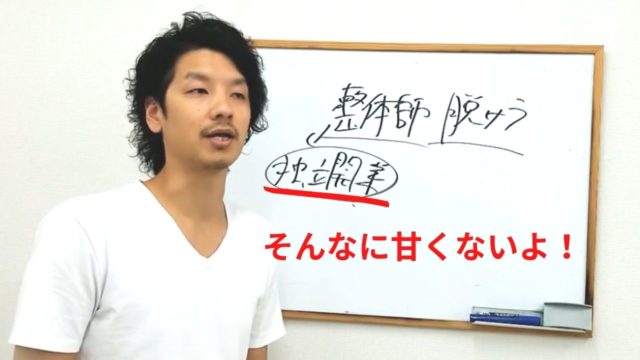 整体師 脱サラ
独立開業
そんなに甘くないよ！